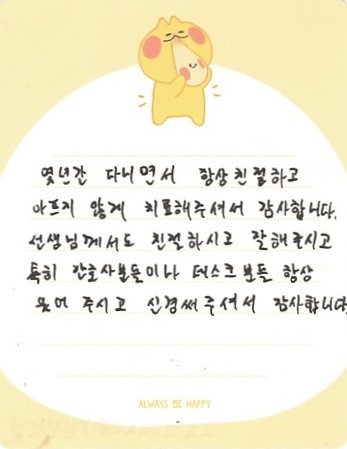 몇년간 다니면서 항상 친절하고
아프지 않게 치료해주셔서 감사합니다.
선생님께서도 친절하시고 잘해주시고
특히 간호사분들이나 데스크분들 항상
웃어 주시고 신경써주셔서 감사합니다
ALWAYS BE HAPPY